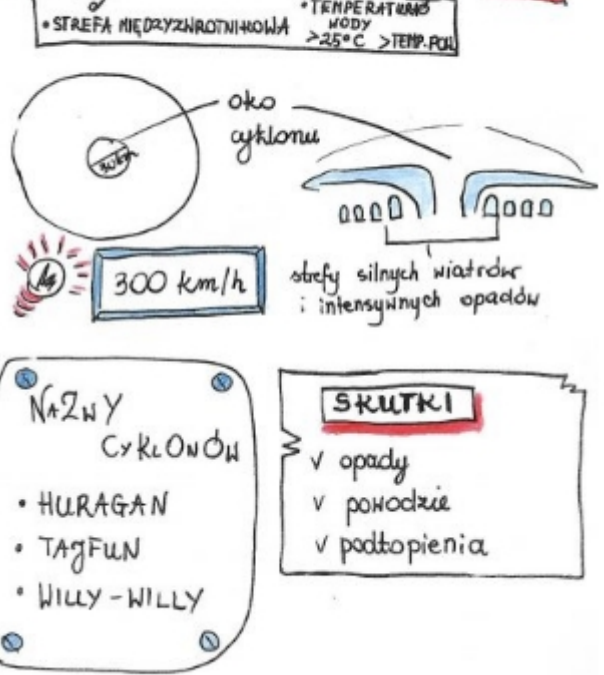 • STREFA MIĘDZYZWROTNIKOWA
• TEMPERATURA
WODY
>25°C >TEMP. POW.
oko
cyklonu
30 km
300 km/h
strefy silnych wiatrów
i intensywnych opadów
NAZWY
CYKLONÓW
• HURAGAN
• TAJFUN
• WILLY-WILLY
SKUTKI
v opady
v powodzie
v podtopienia